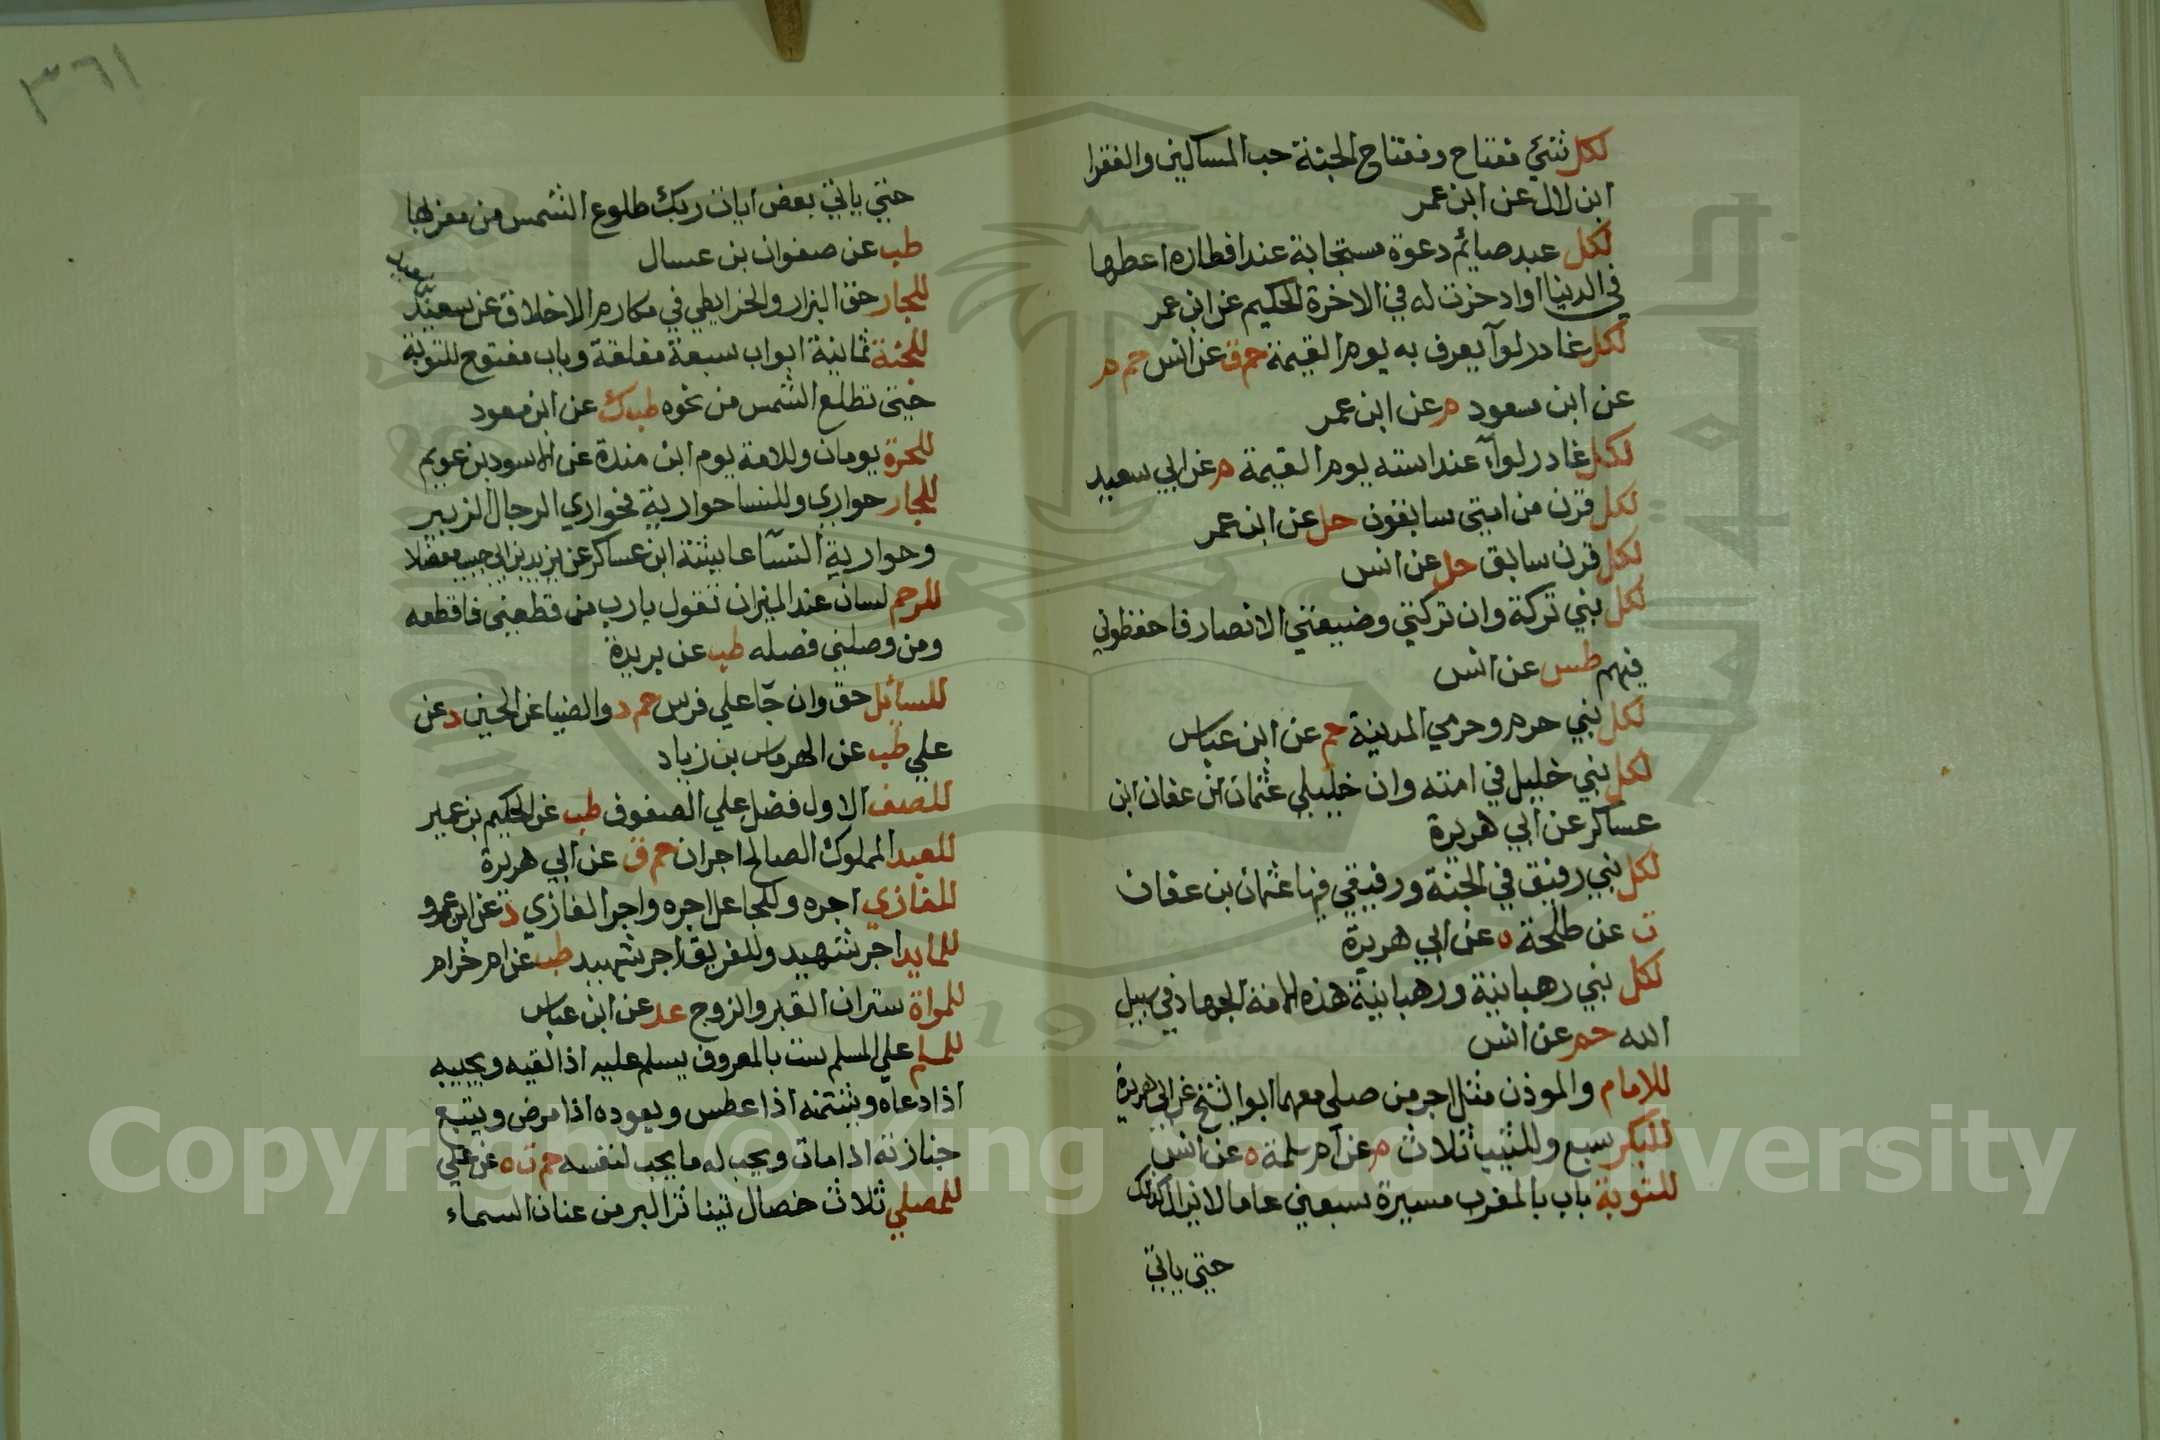 لكل شيء مفتاح ومفتاح الجنة حب المساكين والفقرا
ابن لال عن ابن عمر
لكل عبد صائم دعوة مستجابة عند افطاره اعطيها
في الدنيا او ادخرت له في الاخرة الحكيم عن ابن عمر
لكل غادر لوآ يعرف به يوم القيمة حم ق عن انس حم م
عن ابن مسعود م عن ابن عمر
لكل غادر لوآء عند استه يوم القيمة م عن ابي سعيد
لكل قرن من امتي سابقون حل عن ابن عمر
لكل قرن سابق حل عن انس
لكل نبي تركة وان تركتي وضيعتي الانصار فاحفظوني
فيهم طس عن انس
لكل نبي حرم وحرمي المدينة حم عن ابن عباس
لكل نبي خليل في امته وان خليلي عثمان ابن عفان ابن
عساكر عن ابي هريرة
لكل نبي رفيق في الجنة ورفيقي فيها عثمان بن عفان
ت عن طلحة ه عن ابي هريرة
لكل نبي رهبانية ورهبانية هذه الامة الجهاد في سبيل
الله حم عن انس
للامام والموذن مثل اجر من صلي معهما ابو الشيخ عن ابي هريرة
للبكر سبع وللثيب ثلاث م عن ام سلمة ه عن انس
للتوبة باب بالمغرب مسيرة سبعين عاما لا يزال كذلك
حتي ياتي
٣٦١
حتي ياتي بعض ايات ربك طلوع الشمس من مغربها
طب عن صفوان بن عسال
للجار حق البزار والخرايطي في مكارم الاخلاق عن سعيد
للجنة ثمانية ابواب سبعة مغلقة وباب مفتوح للتوبة
حتي تطلع الشمس من نحوه طب ك عن ابن مسعود
للحرة يومان وللامة يوم ابن مندة عن الاسود بن عويم
للجار حواري وللنسا حوارية فحواري الرجال الزبير
وحوارية النسآ عايشة ابن عساكر عن يزيد بن ابي حبيب معضلا
للرحم لسان عند الميزان تقول يارب من قطعني فاقطعه
ومن وصلني فصله طب عن بريدة
للسائل حق وان جآ علي فرس حم د والضيا عن الحسين د عن
علي طب عن الهرماس بن زياد
للصف الاول فضل علي الصفوف طب عن الحكيم بن عمير
للعبد المملوك الصالح اجران حم ق عن ابي هريرة
للغازي اجره وللجاعل اجره واجر الغازي د عن ابن عمرو
للمايد اجر شهيد وللغريق اجر شهيد طب عن ام حرام
للمراة ستران القبر والزوج عد عن ابن عباس
للمسلم علي المسلم ست بالمعروف يسلم عليه اذا لقيه ويجيبه
اذا دعاه ويشتمته اذا عطس ويعوده اذا مرض ويتبع
جنازته اذا مات ويحب له ما يحب لنفسه حم ت ه عن علي
للمصلي ثلاث خصال تيناثر البر من عنان السماء
Copyright © King Saud University